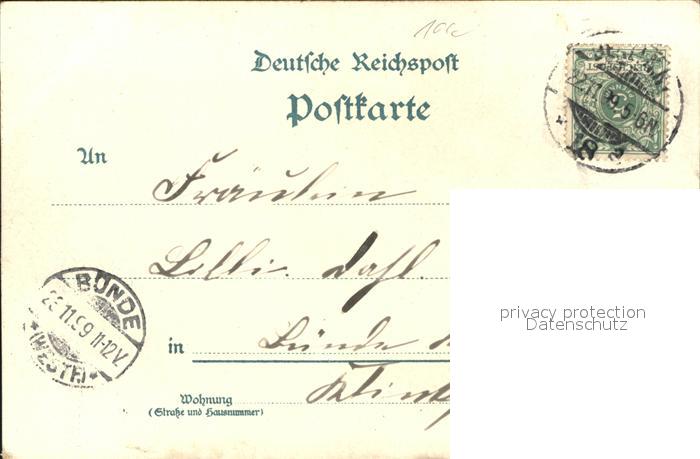 Deutsche Reichspost
Postkarte
An
Fräulein
Lilli. Dahl.
in Bünde
Wohnung
(Straße und Hausnummer)
BÜNDE
23.11.99.11-12V.
*(WESTF.)*
privacy protection
Datenschutz